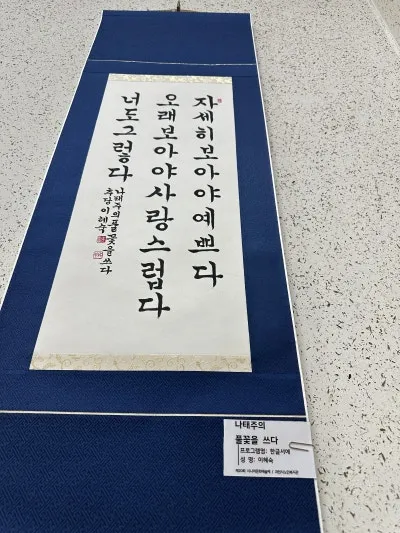 자세히 보아야 예쁘다
오래 보아야 사랑스럽다
너도 그렇다
나태주의 풀꽃을 쓰다
추당 이혜숙
나태주의
풀꽃을 쓰다
프로그램명: 한글서예
성 명: 이혜숙